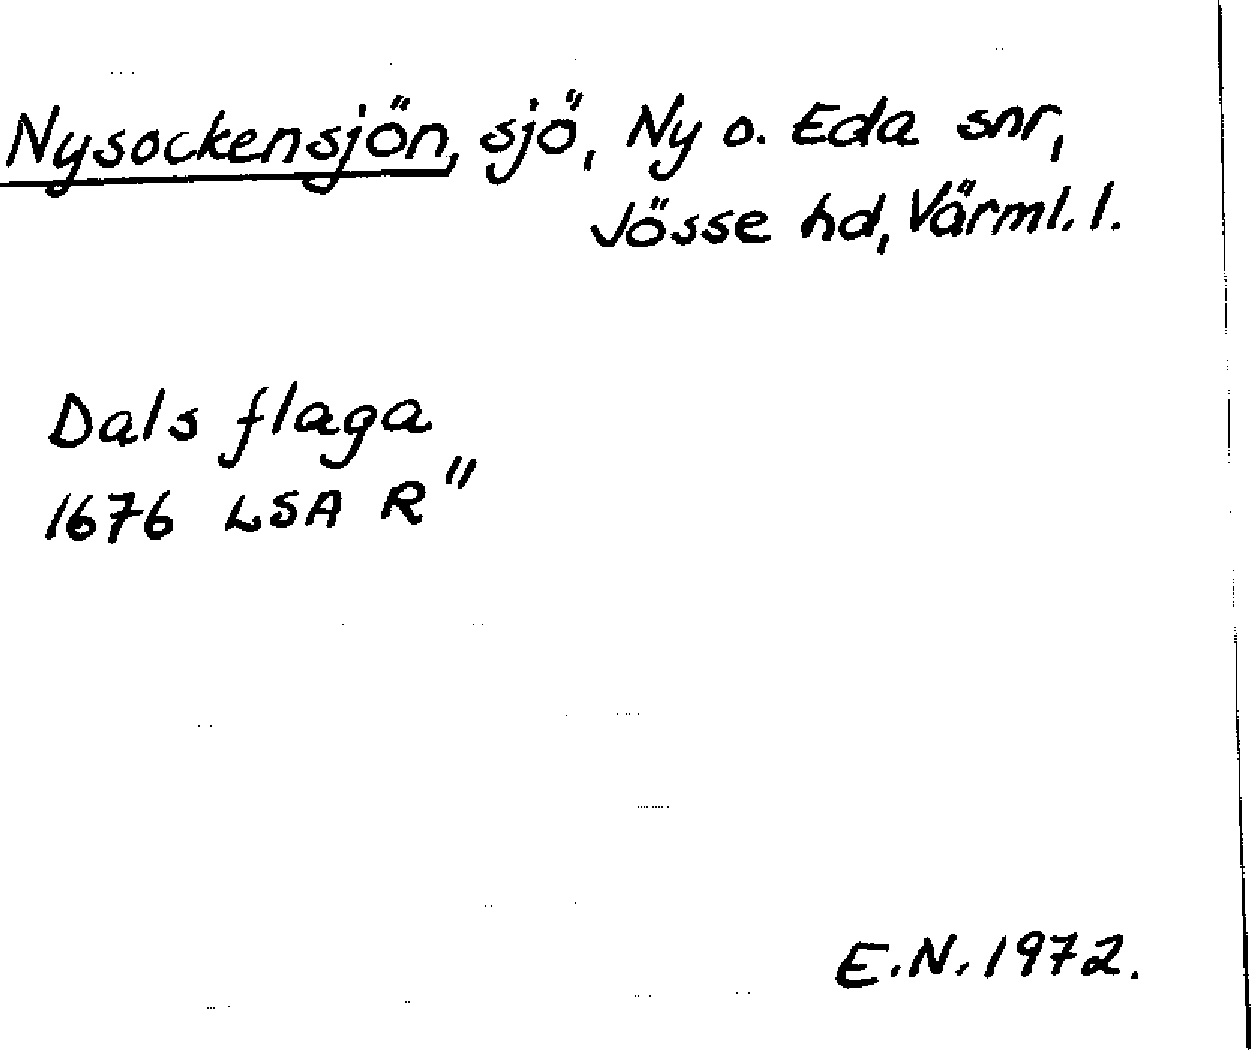 Nysockensjön, sjö, Ny o. Eda snr,
Jösse hd, Värml. l.
Dals flaga
1676 LSA R"
E.N. 1972.